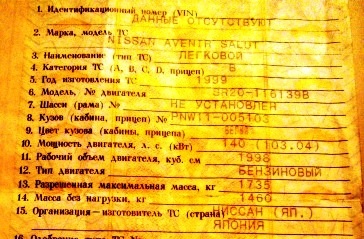 1. Идентификационный номер (VIN) ДАННЫЕ ОТСУТСТВУЮТ
2. Марка, модель ТС NISSAN AVENIR SALUT
3. Наименование (тип ТС) ЛЕГКОВОЙ
4. Категория ТС (A, B, C, D, прицеп) B
5. Год изготовления ТС 1999
6. Модель, № двигателя SR20-116139B
7. Шасси (рама) № НЕ УСТАНОВЛЕН
8. Кузов (кабина, прицеп) № PNW11-005103
9. Цвет кузова (кабины, прицепа) БЕЛЫЙ
10. Мощность двигателя, л. с. (кВт) 140 (103.04)
11. Рабочий объем двигателя, куб. см 1998
12. Тип двигателя БЕНЗИНОВЫЙ
13. Разрешенная максимальная масса, кг 1735
14. Масса без нагрузки, кг 1460
15. Организация—изготовитель ТС (страна) НИССАН (ЯП.)
ЯПОНИЯ